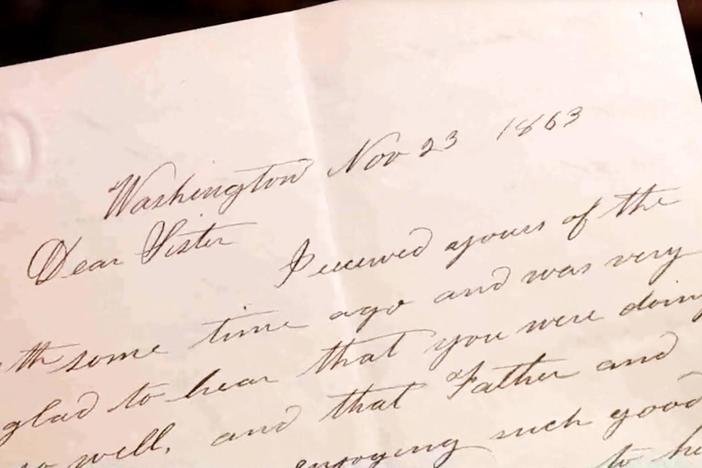 Washington Nov 23 1863
Dear Sister
I received yours of the
th some time ago and was very
glad to hear that you were doing
so well, and that Father and
enjoying such good
to he